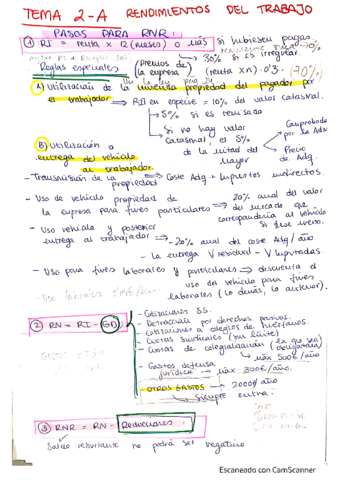 TEMA 2-A RENDIMIENTOS DEL TRABAJO
PASOS PARA RNR:
① RI = renta x 12 (meses) o más si hubiesen pagas.
30% si es irregular.
Reglas especiales (Premios de la empresa) (renta x n)·0'3. 70%
A) Utilización de la vivienda propiedad del pagador por el trabajador → RI en especie = 10% del valor catastral.
↳ 5% si es revisado
Si no hay valor catastral, el 5% de la mitad del mayor
Comprobado por la Adm
Precio de Adq.
B) Utilización o entrega del vehículo al trabajador.
- Transmisión de la propiedad ⇒ Coste Adq + Impuestos indirectos.
- Uso de vehículo propiedad de la empresa para fines particulares ⇒ 20% anual del valor de mercado que correspondería al vehículo si fuese nuevo.
- Uso vehículo y posterior entrega al trabajador ⇒ - 20% anual del coste Adq / año
- La entrega V residual - V imputadas.
- Uso para fines laborales y particulares → descuenta el uso del vehículo para fines laborales (lo demás, lo anterior).
② RN = RI - GD
- Cotizaciones SS.
- Detracciones por derechos pasivos.
- Cotizaciones a colegios de huérfanos.
- Cuotas sindicales (sin límite)
- Cuotas de colegialización (la que sea obligatoria)
↳ máx 500€/año
- Gastos defensa jurídica → máx 300€/año.
- OTROS GASTOS → 2000€/año
↳ Siempre entra.
③ RNR = RN - Reducciones
↳ Saldo resultante no podrá ser negativo
Escaneado con CamScanner